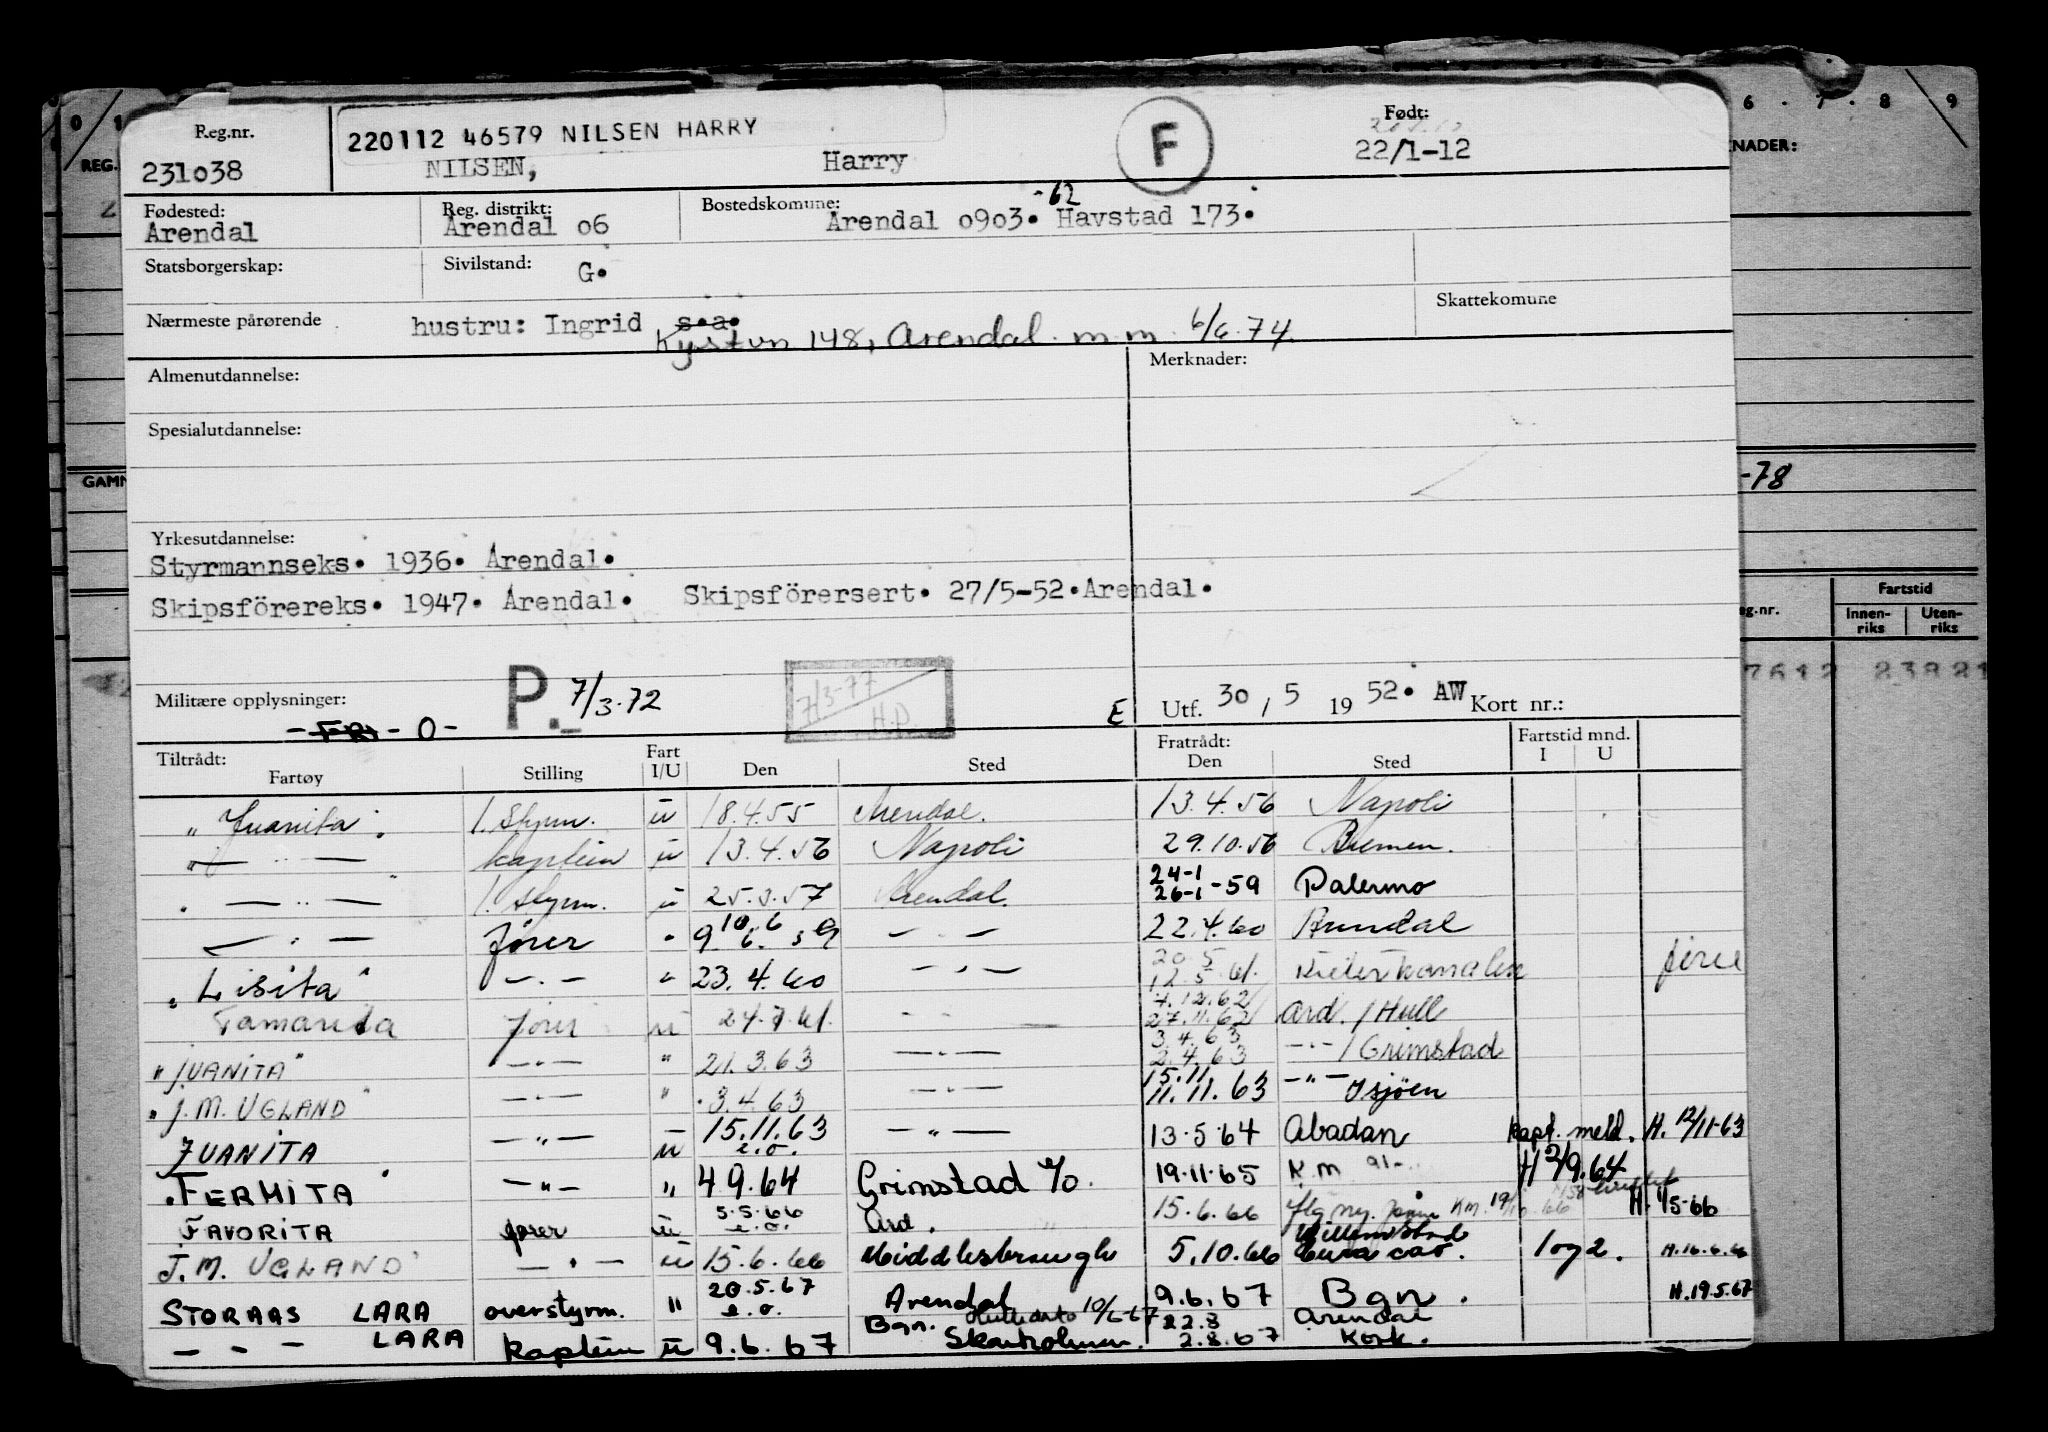 0 1
6 · 7 · 8 9
REG.
NADER:
Reg.nr.
220112 46579 NILSEN HARRY
F
Født:
231038
NILSEN, Harry
22/1-12
Fødested:
Reg. distrikt:
Bostedskomune:
-62
Arendal
Arendal 06
Arendal 0903. Havstad 173.
Statsborgerskap:
Sivilstand:
G.
Skattekomune
Nærmeste pårørende
hustru: Ingrid s.a.
Kystvn 148, Arendal. m.m. 6/6.74.
Almenutdannelse:
Merknader:
Spesialutdannelse:
GAMN
-78
Yrkesutdannelse:
Styrmannseks. 1936. Arendal.
Skipsförereks. 1947. Arendal. Skipsförersert. 27/5-52. Arendal.
Fartstid
g.nr. Innen-riks Uten-riks
7612 23821
Militære opplysninger:
- FRI - O -
P. 7/3.72
7/3-77
H.P.
E
Utf. 30 / 5 19 52. AW Kort nr.:
Tiltrådt: Fart Fratrådt: Fartstid mnd.
Fartøy Stilling I/U Den Sted Den Sted I U
"Juanita". 1. Styrm. u 18.4.55 Arendal. 13.4.56 Napoli
" — " — kaptein u 13.4.56 Napoli 29.10.56 Bremen.
" — " — 1. Styrm. u 25.3.57 Arendal. 24-1 26-1-59 Palermo
— " — fører " 10 6 9. 6. 59 — " — 22.4.60 Arendal
"Lisita" — " — " 23.4.60 — " — 20.5 12.5.61. Kielerkanalen fører
Tamarita fører u 24.7.61. — " — 4.12.62 27.11.62 Ard. / Hull
"JUANITA" — " — " 21.3.63 — " — 3.4.63 2.4.63 — " — / Grimstad
"J.M. UGLAND" — " — " 3.4.63 — " — 15.11 11.11.63 — " — Isjøen
JUANITA — " — u 15.11.63 e.o. — " — 13.5.64 Abadan kapt. meld. H. 12/11-63
"FERMITA" — " — " 4.9.64 Grimstad e/o. 19.11.65 K.m H 2/9.64
FAVORITA fører u 5.5.66 e.o. Ard. 15.6.66 H. 1/5-66
J.M. UGLAND — " — u 15.6.66 Middlesbraugh 5.10.66 Willemstad Curacao. 1 og 2. H.16.6.66
STORAAS LARA overstyrm. " 20.5.67 e.o. Arendal 9.6.67 Bgn. H.19.5.67
— — — LARA kaptein u 9.6.67 Bgn. 10/6-67 Skarholmen. 22.8 2.8.67 Arendal Kork.